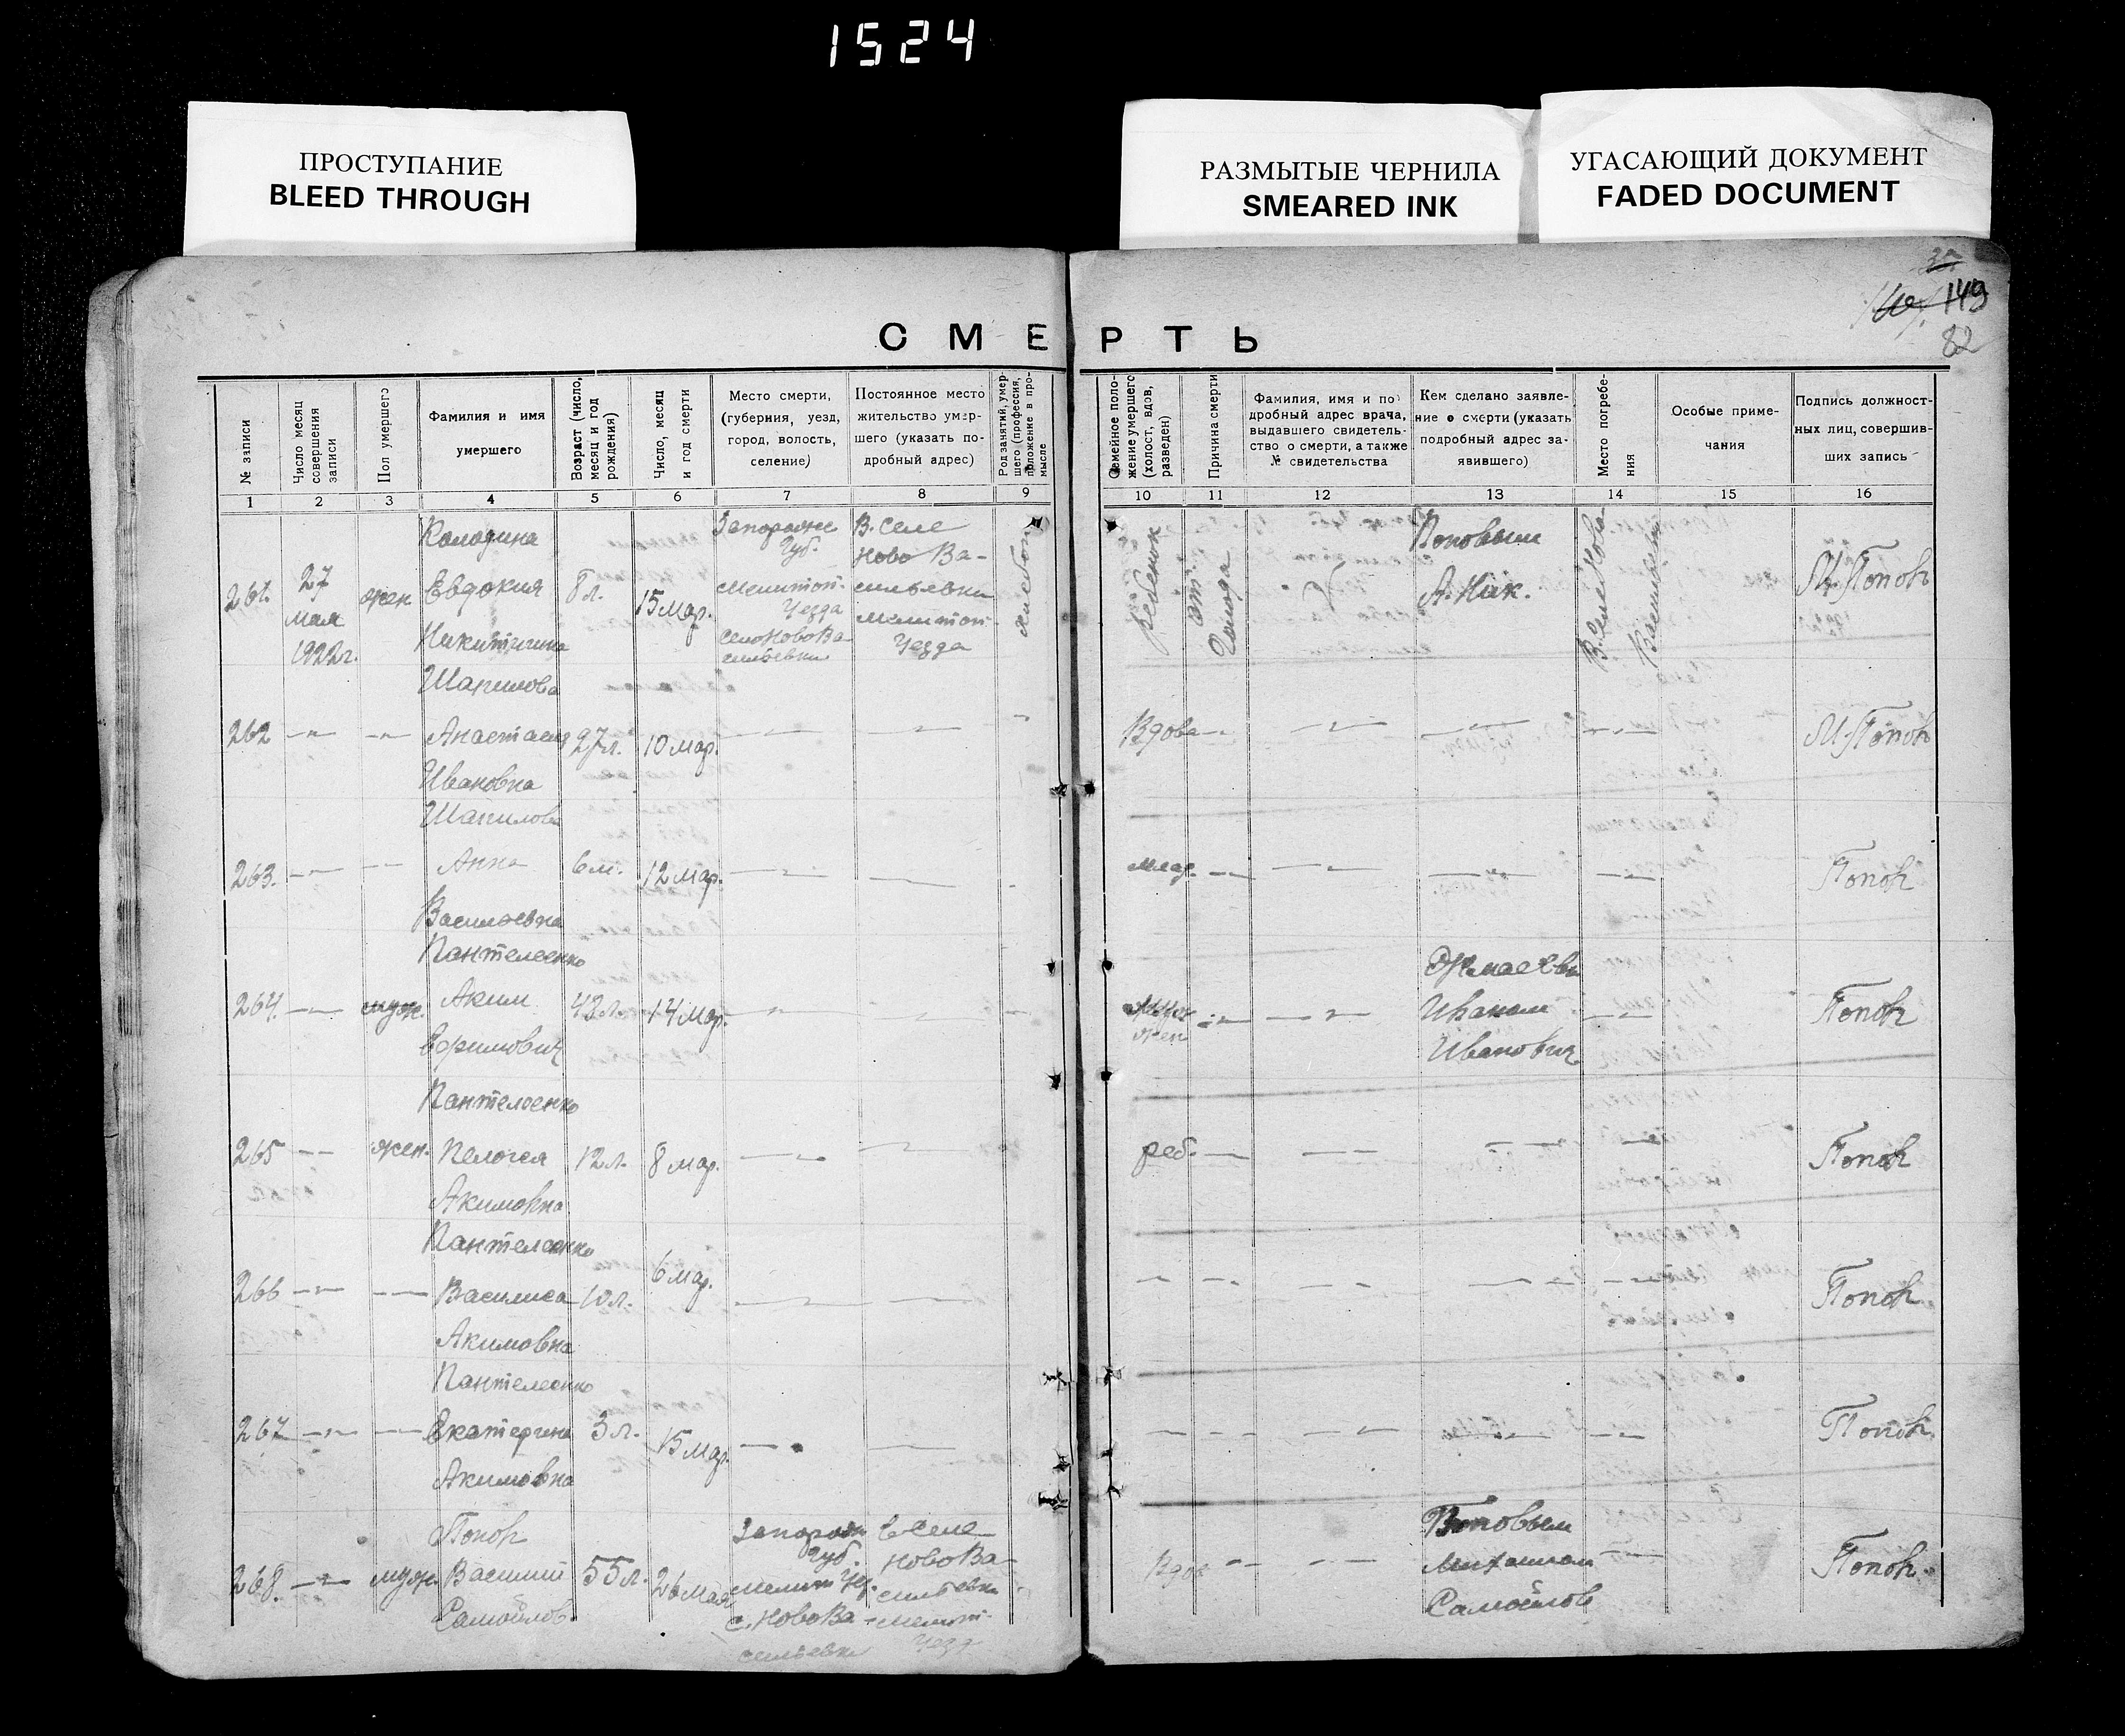 1524
ПРОСТУПАНИЕ
BLEED THROUGH
РАЗМЫТЫЕ ЧЕРНИЛА
SMEARED INK
УГАСАЮЩИЙ ДОКУМЕНТ
FADED DOCUMENT
149
82
СМЕРТЬ
№ записи
Число месяц
совершения
записи
Пол умершего
Фамилия и имя
умершего
Возраст (число,
месяц и год
рождения)
Число, месяц
и год смерти
Место смерти,
(губерния, уезд,
город, волость,
селение)
Постоянное место
жительства умер-
шего (указать по-
дробный адрес)
Род занятий, умер-
шего (профессия,
положение в про-
мысле
Семейное поло-
жение умершего
(холост, вдов,
разведен)
Причина смерти
Фамилия, имя и по
дробный адрес врача,
выдавшего свидетель-
ство о смерти, а также
№ свидетельства
Кем сделано заявле-
ние о смерти (указать
подробный адрес за-
явившего)
Место погребе-
ния
Особые приме-
чания
Подпись должност-
ных лиц, совершив-
ших запись
1 2 3 4 5 6 7 8 9 10 11 12 13 14 15 16
261.
27
мая
1922г.
жен
Евдокия
Никитична
8 л.
15 мар.
Запорожс
Губ.
Мелитоп.
Уезда
село Ново Ва-
сильевки
В. селе
Ново Ва-
сильевки
Мелитоп.
Уезда
ребенок
от
голода
Поповым
А. Ник.
М. Попов
262 —"— —"—
Шапилова
Анастасия
Ивановна
27 л.
10 мар.
Вдова
М. Попов
263.
Шапилова
Анна
Васильевна
6 м.
12 мар.
млад.
Попов
264.
муж.
Пантелеенко
Аким
Ефимович
43 л.
14 мар.
Иваном
Иванович
Попов
265
жен.
Пантелеенко
Пелогея
Акимовна
12 л.
8 мар.
реб.
Попов
266
Пантелеенко
Василиса
Акимовна
10 л.
6 мар.
Попов
267
Пантелеенко
Екатерина
Акимовна
3 л.
15 мар.
Попов
268.
муж.
Попов
Василий
Самойлов.
55 л.
26 мая
Запорож
Губ.
Мелит Уез.
с. Ново Ва-
сильевки
В селе
Ново Ва-
сильевки
Мелит.
Уезд
Вдов
Поповым
Михаилом
Самойлов
Попов